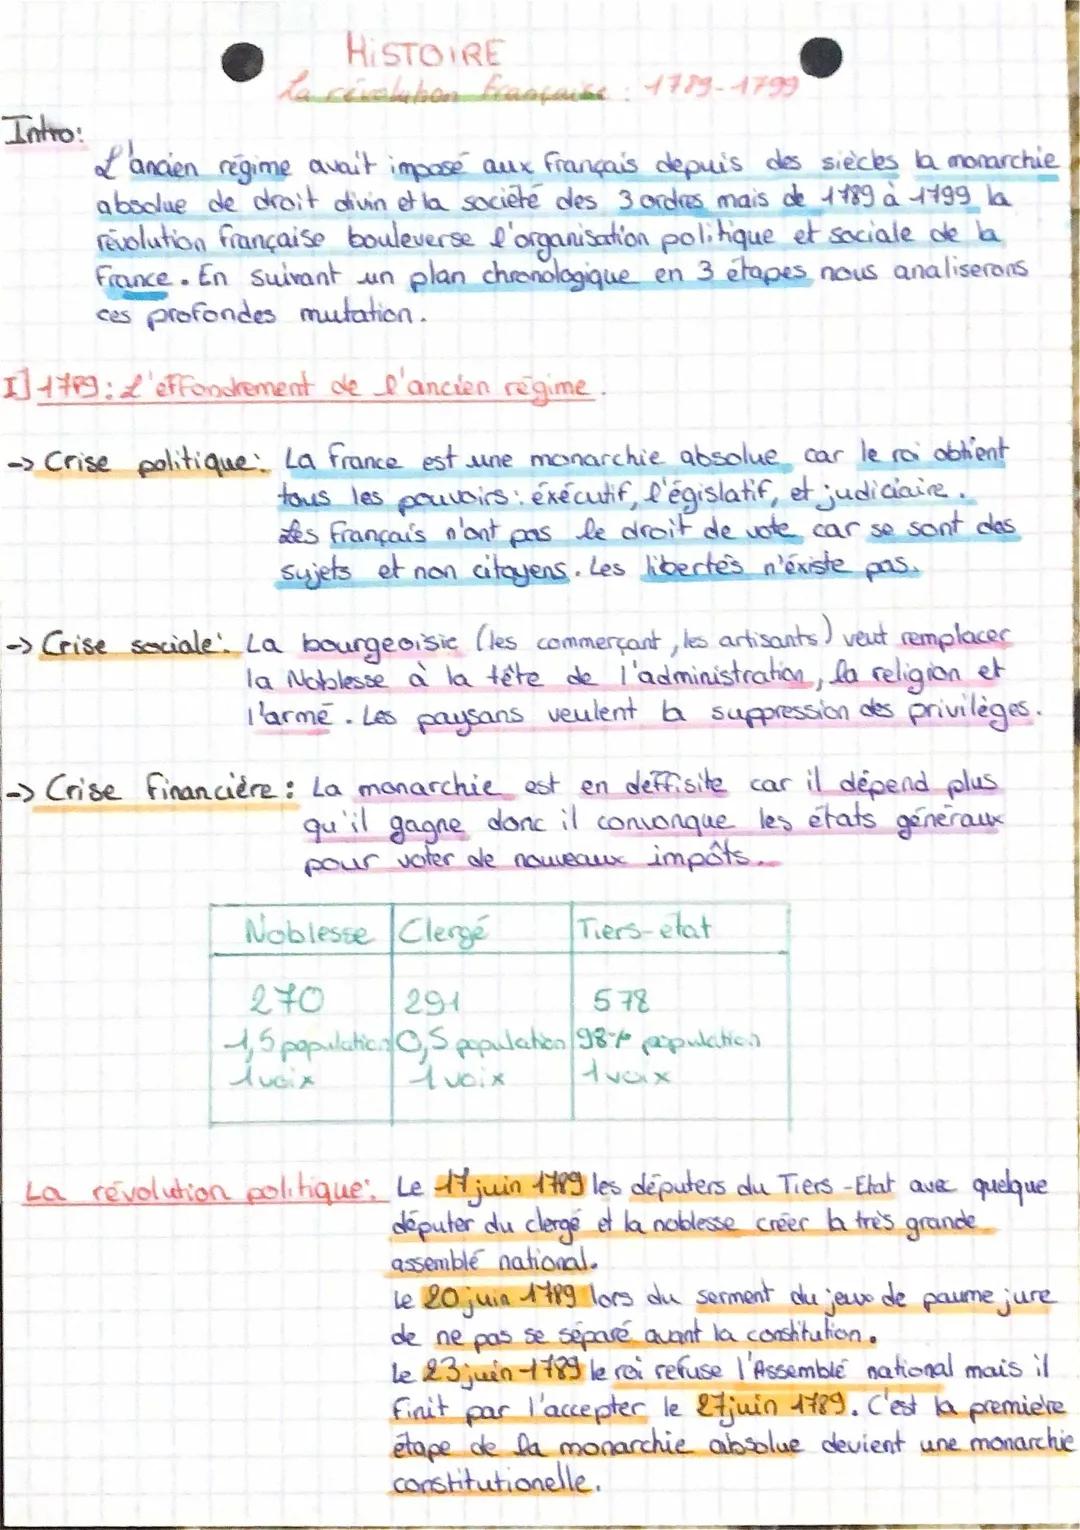 HISTOIRE
La révolution française : 1789-1799
Intro:
L'ancien régime avait imposé aux français depuis des siècles la monarchie
absolue de droit divin et la société des 3 ordres mais de 1789 à 1799 la
révolution française bouleverse l'organisation politique et sociale de la
France. En suivant un plan chronologique en 3 étapes nous analiserons
ces profondes mutation.
I] 1789: L'effondrement de l'ancien régime.
-> Crise politique: La france est une monarchie absolue car le roi obtient
tous les pouvoirs: éxécutif, l'égislatif, et judiciaire.
Les français n'ont pas le droit de vote car se sont des
sujets et non citoyens. Les libertés n'éxiste pas.
-> Crise sociale: La bourgeoisie (les commerçant, les artisants) veut remplacer
la Noblesse à la tête de l'administration, la religion et
l'armé. Les paysans veulent la suppression des privilèges.
-> Crise financière: La monarchie est en deffisite car il dépend plus
qu'il gagne donc il convonque les états généraux
pour voter de nouveaux impôts.
Noblesse Clergé Tiers-état
270 291 578
1,5 population 0,5 population 98% population
1 voix 1 voix 1 voix
La révolution politique: Le 17 juin 1789 les députers du Tiers-Etat avec quelque
députer du clergé et la noblesse créer la très grande
assemblé national.
Le 20 juin 1789 lors du serment du jeux de paume jure
de ne pas se séparé avant la constitution.
Le 23 juin 1789 le roi refuse l'Assemblé national mais il
finit par l'accepter le 27 juin 1789. C'est la première
étape de la monarchie absolue devient une monarchie
constitutionelle.